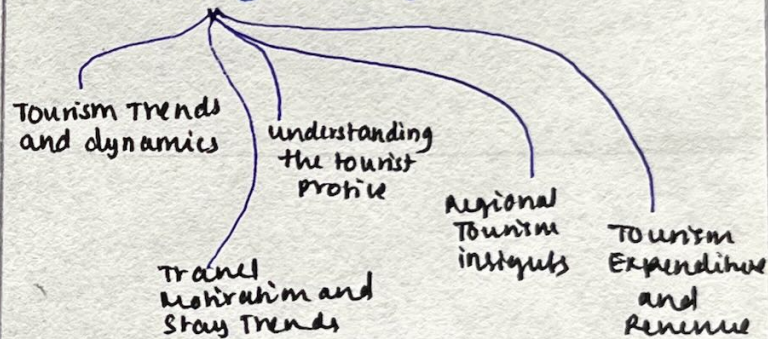 Tourism Trends
and dynamics
understanding
the tourist
profile
Travel
Motivation and
Stay Trends
Regional
Tourism
insights
Tourism
Expenditure
and
Revenue